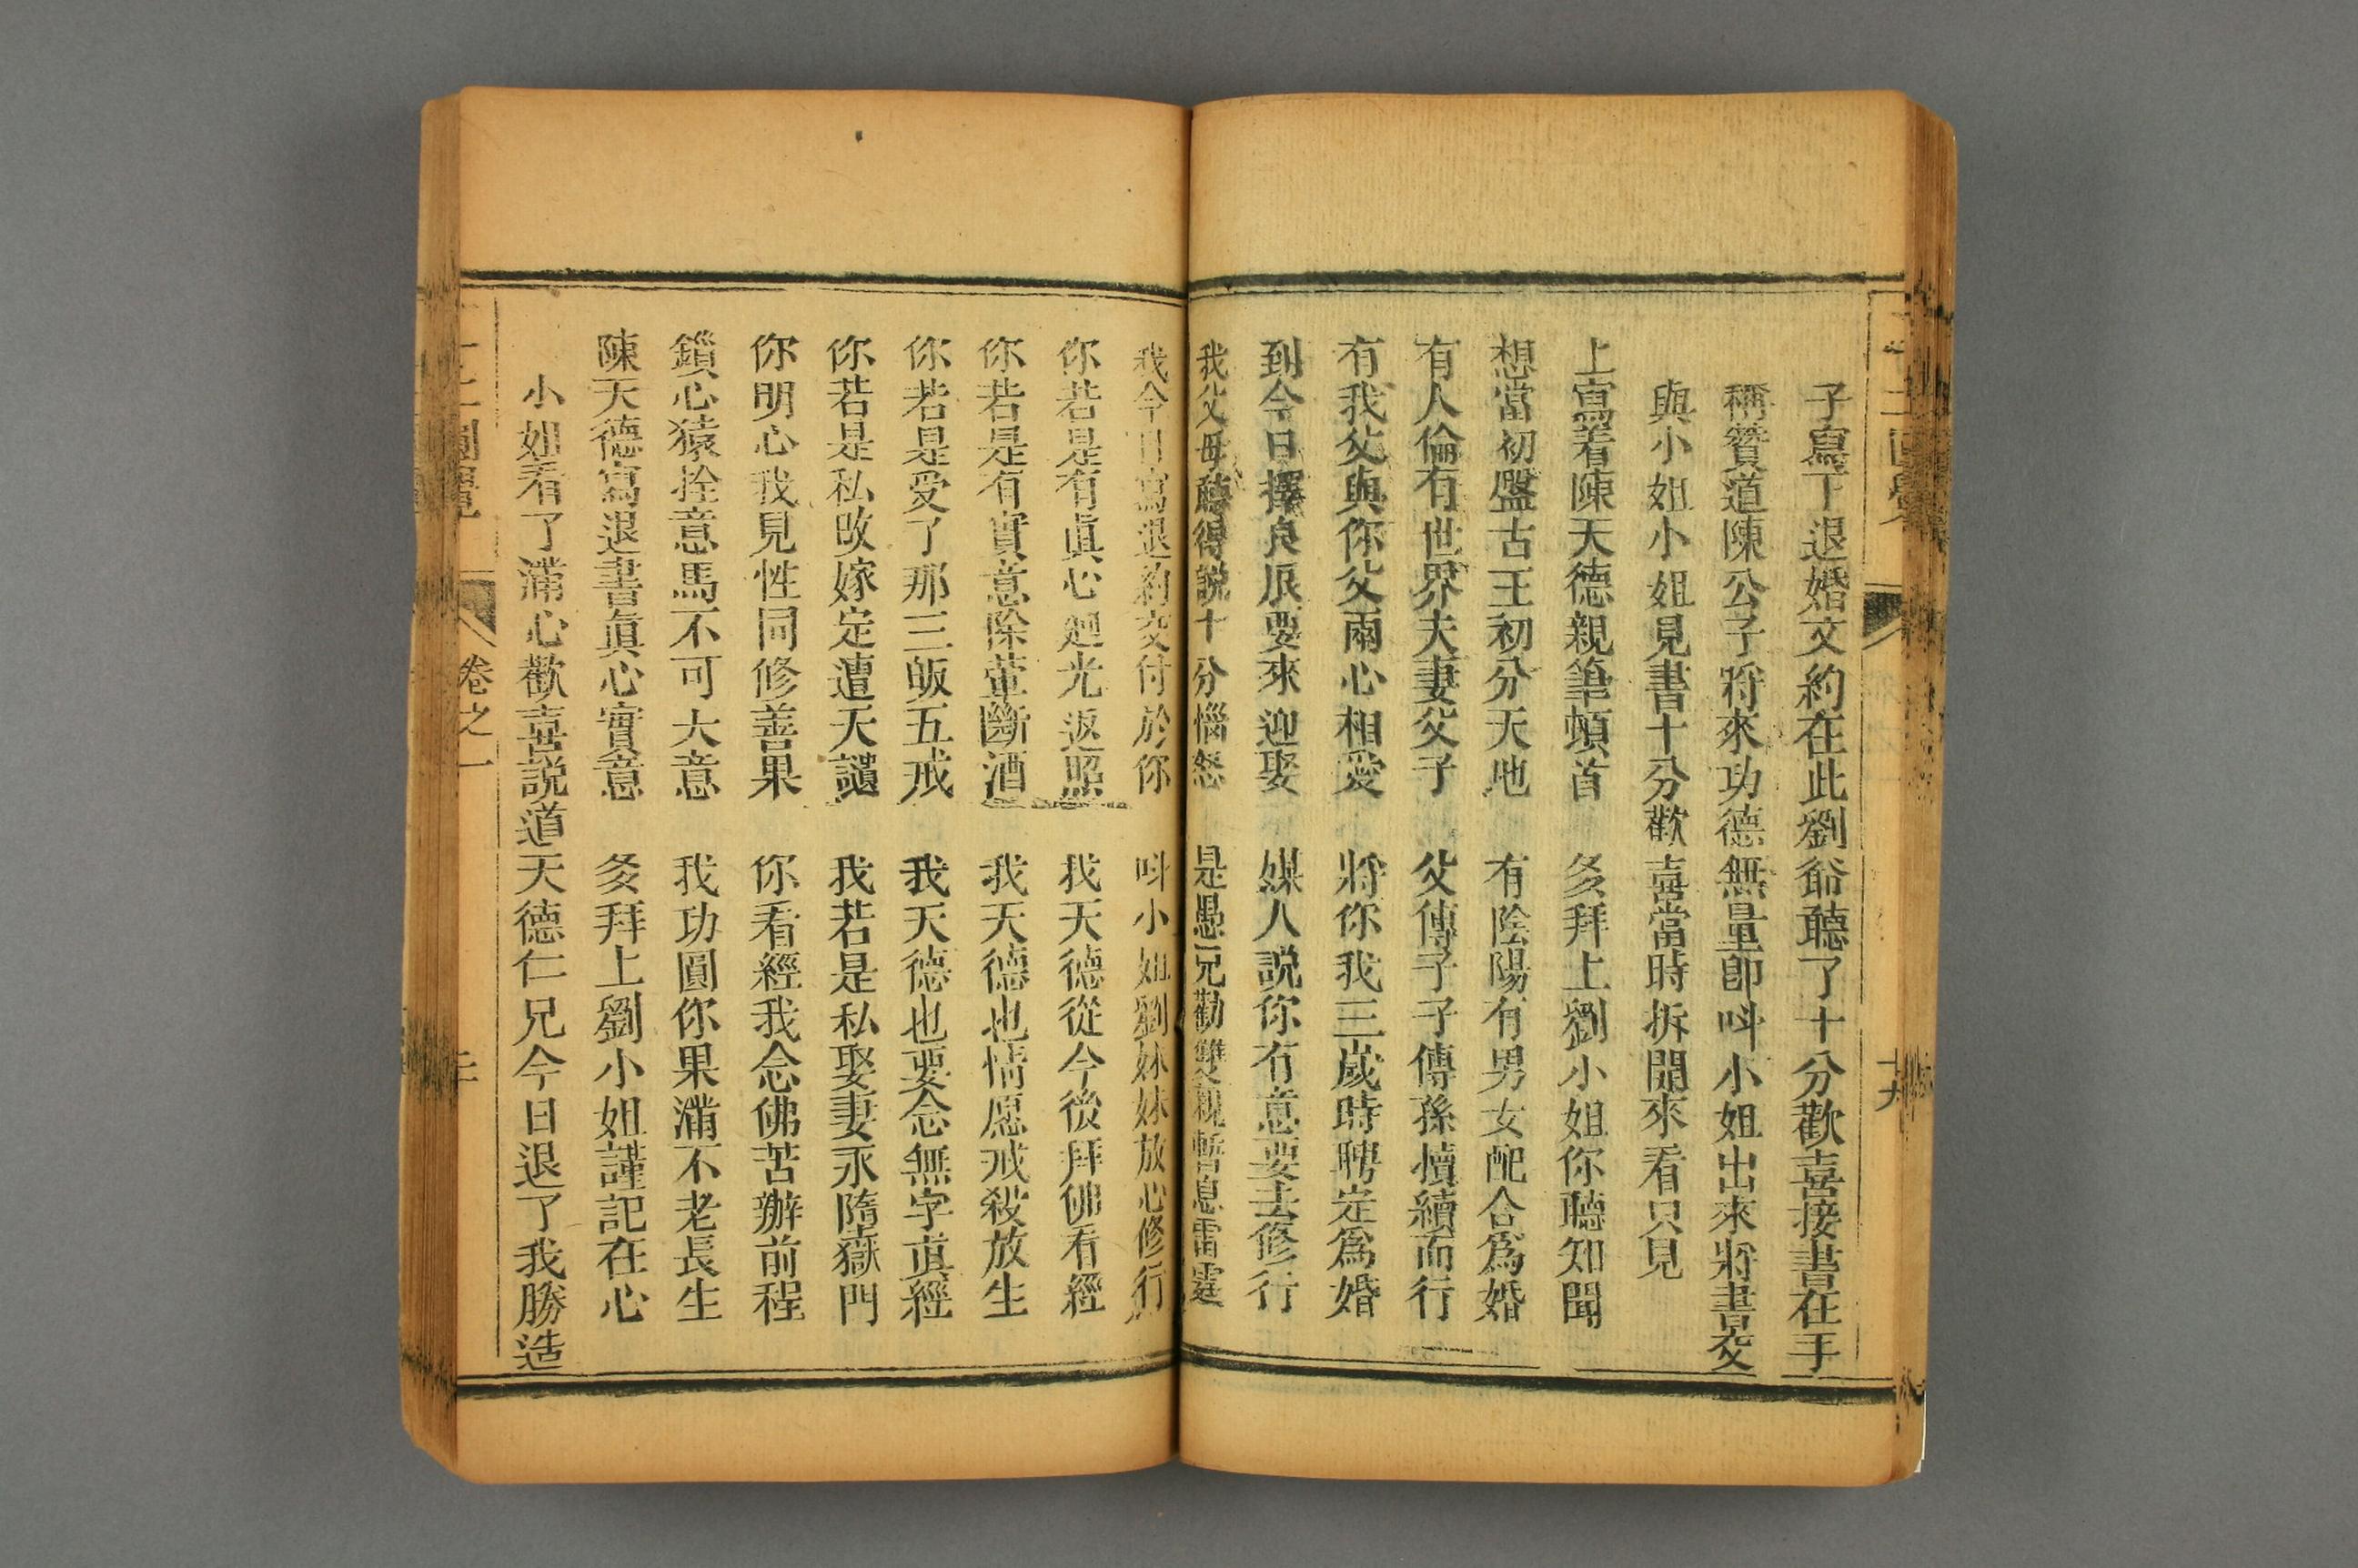 子寫下退婚文約在此劉爺聽了十分歡喜接書在手
稱贊道陳公子將來功德無量卽呌小姐出來將書交
與小姐小姐見書十分歡喜當時拆開來看只見
上寫着陳天德親筆頓首 多拜上劉小姐你聽知聞
想當初盤古王初分天地 有陰陽有男女配合爲婚
有人倫有世界夫妻父子 父傳子子傳孫接續而行
有我父與你父兩心相愛 將你我三歲時聘定爲婚
到今日擇良辰要來迎娶 媒人説你有意要去修行
我父母聽得説十分惱怒 是愚兄勸雙親暫息雷霆
我今日寫退約交付於你 呌小姐劉妹妹放心修行
你若是有眞心廻光返照 我天德從今後拜佛看經
你若是有實意除葷斷酒 我天德也情愿戒殺放生
你若是受了那三皈五戒 我天德也要念無字眞經
你若是私改嫁定遭天譴 我若是私娶妻永隋獄門
你明心我見性同修善果 你看經我念佛苦辦前程
鎖心猿拴意馬不可大意 我功圓你果滿不老長生
陳天德寫退書眞心實意 多拜上劉小姐謹記在心
小姐看了滿心歡喜説道天德仁兄今日退了我勝造
卷之一